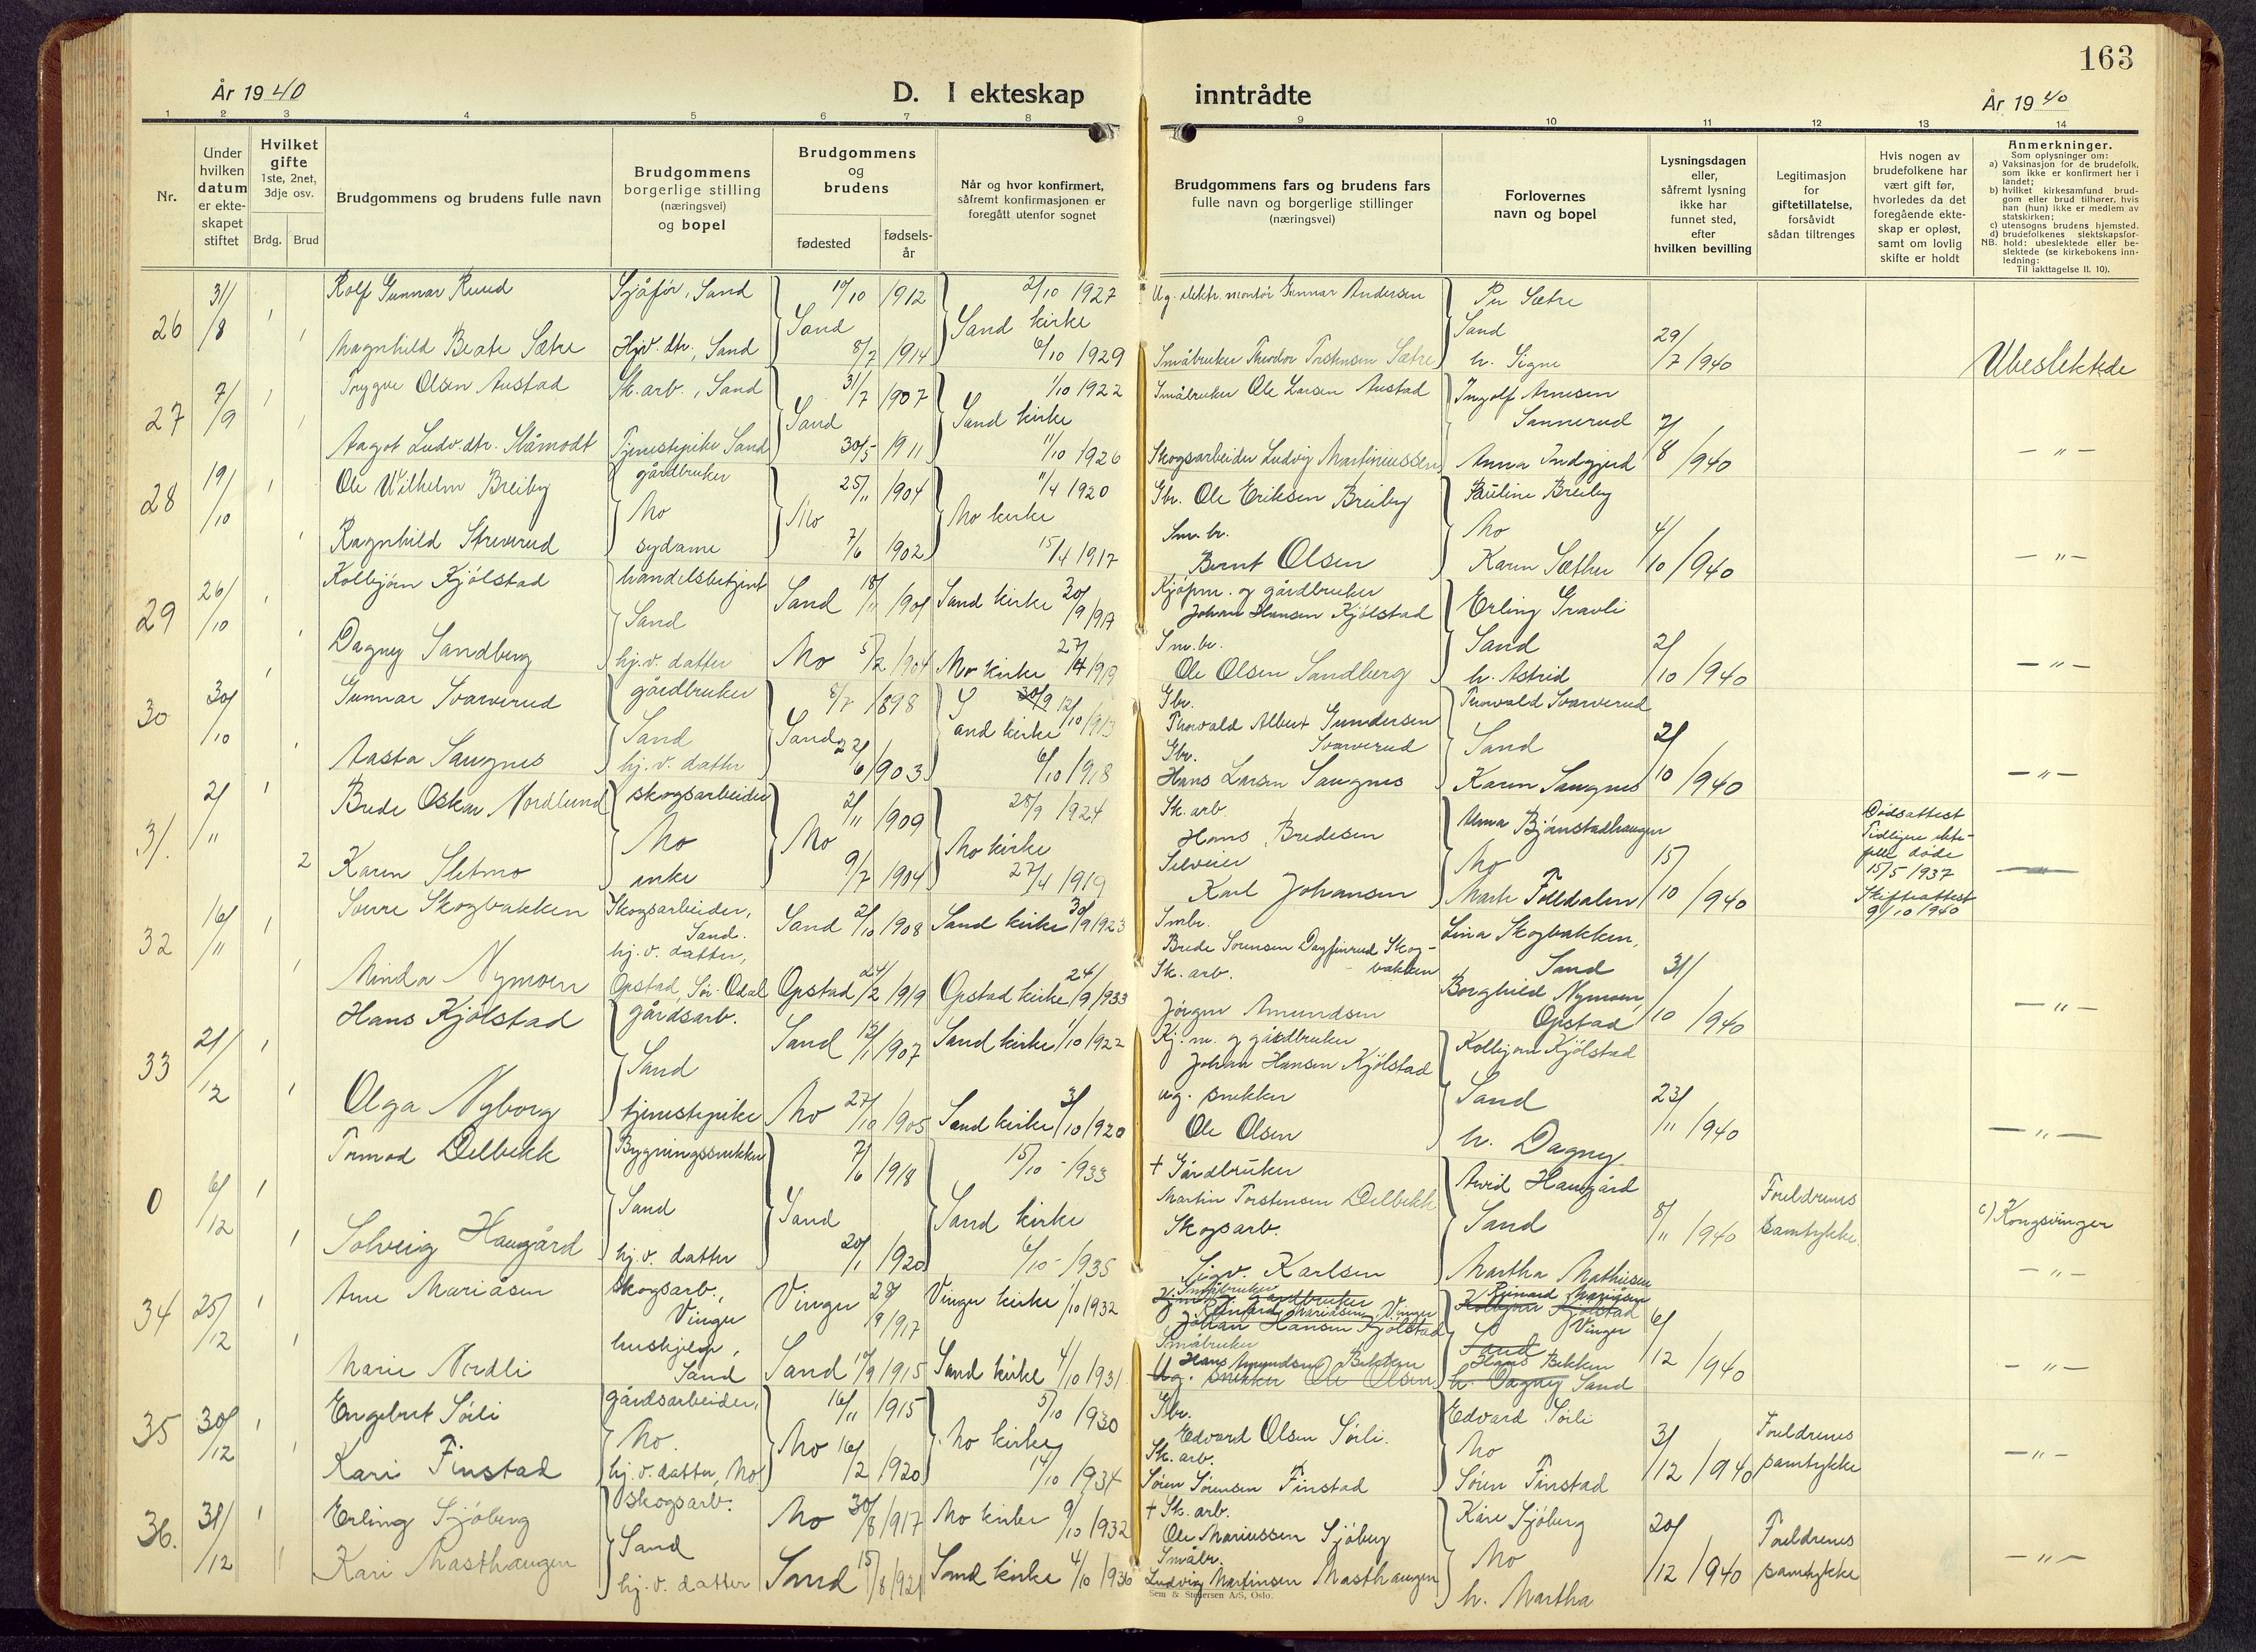 163
År 1940
D. I ekteskap inntrådte
År 1940
1 2 3 4 5 6 7 8 9 10 11 12 13 14
Nr.
Under hvilken datum er ekteskapet stiftet
Hvilket gifte 1ste, 2net, 3dje osv.
Brdg. Brud
Brudgommens og brudens fulle navn
Brudgommens borgerlige stilling (næringsvei) og bopel
Brudgommens og brudens
fødested
fødselsår
Når og hvor konfirmert, såfremt konfirmasjonen er foregått utenfor sognet
Brudgommens fars og brudens fars fulle navn og borgerlige stillinger (næringsvei)
Forlovernes navn og bopel
Lysningsdagen eller, såfremt lysning ikke har funnet sted, efter hvilken bevilling
Legitimasjon for giftetillatelse, forsåvidt sådan tiltrenges
Hvis nogen av brudefolkene har vært gift før, hvorledes da det foregående ekteskap er opløst, samt om lovlig skifte er holdt
Anmerkninger.
Som oplysninger om:
a) Vaksinasjon for de brudefolk, som ikke er konfirmert her i landet;
b) hvilket kirkesamfund brudgom eller brud tilhører, hvis han (hun) ikke er medlem av statskirken;
c) utensogns brudens hjemsted.
d) brudefolkenes slektskapsforhold: ubeslektede eller beslektede (se kirkebokens innledning:
NB.
Til iakttagelse II. 10).
26 31/8 1 Rolf Gunnar Ruud Sjåfør, Sand 19/10 1912 2/10 1927 Ug. elektr. montör Gunnar Andersen Per Sætre
Sand Sand kirke Sand 29/7 1940
1 Magnhild Beate Sætre Hjv. dtr., Sand 8/7 1914 6/10 1929 Småbruker Theodor Torstensen Sætre h. Signe Ubeslektede
27 7/9 1 Trygve Olsen Austad Sk. arb., Sand 31/7 1907 1/10 1922 Småbruker Ole Larsen Austad Ingolf Arnesen
Sand Sand kirke Sannerud 7/8 1940
1 Aagot Ludv. dtr. Slåmodt Tjenestepike Sand 30/5 1911 11/10 1926 Skogsarbeider Ludvig Martiniussen Anna Indgjerd - " -
28 19/10 1 Ole Wilhelm Breiby gårdbruker 25/11 1904 11/4 1920 Gbr. Ole Eriksen Breiby Pauline Breiby
Mo Mo Mo kirke Sm. br. Mo 4/10 1940
1 Ragnhild Streverud sydame 7/6 1902 15/4 1917 Bernt Olsen Karen Sæther - " -
29 26/10 1 Kolbjörn Kjölstad handelsbetjent Sand 18/11 1901 Sand kirke 30/9 1917 Kjöpm. og gårdbruker
Sand Johan Hansen Kjölstad Erling Gravli
Sm. br. Sand 2/10 1940
1 Dagny Sandberg hj. v. datter Mo 5/2 1904 Mo kirke 27/4 1919 Ole Olsen Sandberg h. Astrid - " -
30 30/10 1 Gunnar Svarverud gårdbruker 8/7 1898 30/9 12/10 1913 Gbr. Thorvald Svarverud
Sand Sand Sand kirke Thorvald Albert Gundersen Svarverud Sand 2/10 1940
1 Aasta Saugnes hj. v. datter 22/6 1903 6/10 1918 Gbr. Hans Larsen Saugnes Karen Saugnes - " -
31. 2/11 1 Brede Oskar Nordlund skogsarbeider 2/11 1909 28/9 1924 Sk. arb. Hans Bredesen Anna Björnstadhaugen
Mo Mo Mo kirke Selveier Mo 15/10 1940
2 Karen Sletmo enke 9/7 1904 27/4 1919 Karl Johansen Marte Folldalen
Dødsattest
Tidligere ekte-
felle döde
15/5 1937
Skifteattest
9/10 1940
32 16/11 1 Sverre Skogbakken Skogsarbeider, Sand. Sand 2/10 1908 Sand kirke 30/9 1923 Smbr. Brede Sörensen Dagfinrud Skog-
bakken Lina Skogbakken, Sand 31/10 1940
1 Minda Nymoen hj. v. datter, Opstad, Sör-Odal Opstad 24/2 1919 Opstad kirke 24/9 1933 Sk. arb. Jörgen Amundsen Borghild Nymoen, Opstad - " -
33 21/12 1 Hans Kjölstad gårdsarb. Sand 15/1 1907 Sand kirke 1/10 1922 Kj. m. og gårdbruker
Sand Johan Hansen Kjölstad Kolbjörn Kjölstad
1 Olga Nyborg tjenestepike Mo 27/10 1905 Sand kirke 3/10 1920 ug. snekker Ole Olsen Sand h. Dagny 23/11 1940 - " -
0 6/12 1 Tormod Delbekk Bygningssnekker 7/6 1918 15/10 1933 + Gårdbruker
Martin Torstensen Delbekk Arvid Haugård
Sand Sand Sand kirke Skogsarb. Sand 8/11 1940 Foreldrenes samtykke. c) Kongsvinger
1 Solveig Haugård hj. v. datter 20/1 1920 6/10 1935 Sigv. Karlsen Martha Mathisen - " -
34 25/12 1 Arne Mariåsen skogsarb., Vinger Vinger 28/9 1917 Vinger kirke 1/10 1932 Småbruker gårdbruker
Reinard Mariåsen, Vinger Johan Hansen Kjölstad Kolbjörn Kjölstad Reinard Mariåsen Vinger 6/12 1940
1 Marie Nordli hushjelp, Sand Sand 19/9 1915 Sand kirke 4/10 1931 Småbruker Hans Amundsen Bekken Ug. snekker Ole Olsen Sand Hans Bekken h. Dagny Sand - " -
35 30/12 1 Engebret Sörli gårdsarbeider, 16/11 1915 5/10 1930 Gbr. Edvard Olsen Sörli. Edvard Sörli
Mo. Mo Mo kirke Sk. arb. Mo 3/12 1940 Foreldrenes samtykke
1 Kari Finstad hj. v. datter, Mo 16/2 1920 14/10 1934 Sören Sörensen Finstad Sören Finstad - " -
36. 31/12 1 Erling Sjöberg skogsarb. Mo 30/8 1917 Mo kirke 9/10 1932 + Sk. arb. Ole Mariussen Sjöberg Kåre Sjöberg
Sand Småbr. Mo 20/12 1940 Foreldrenes samtykke
1 Kari Masthaugen hj. v. datter Sand 15/8 1921 Sand kirke 4/10 1936 Ludvig Martinsen Masthaugen h. Martha - " -
Sem & Stenersen A/S, Oslo.